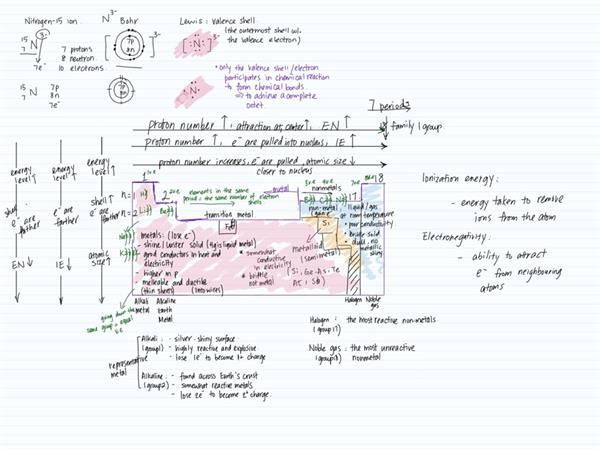 Nitrogen-15 ion
N 3-
Bohr
Lewis : valence shell
(the outermost shell w.
the valence electron)
15 3-
7 N
7e⁻
7 protons
8 neutron
10 electrons
7p
8n
3-
[ N ] 3-
15
7 N
7p
8n
7e⁻
N
• only the valence shell/electron
participates in chemical reaction
→ form chemical bonds
⇒ to achieve a complete
octet
7 periods
family/group
proton number ↑, attraction at center ↑, EN ↑
proton number ↑, e⁻ are pulled into nucleus, IE ↑
proton number increases, e⁻ are pulled, atomic size ↓
closer to nucleus
energy
level ↑
energy
level ↑
energy
level ↑
shell ↑
e⁻ are
farther
e⁻ are
farther
shell ↑
e⁻ are
farther
EN ↓
IE ↓
atomic
size ↑
1
2
17
18
n=1
n=2
elements in the same
period = the same number of electron
shells
metal
nonmetals
transition metal
metals: (lose e⁻)
- shine/luster solid (Hg is liquid metal)
- good conductors in heat and
electricity
- higher in p
- malleable and ductile
(thin sheets) (into wires)
• somewhat
conductive
in electricity
• brittle
not metal
Si
metalloid
(semimetal)
(Si, Ge, As, Te
At, Sb)
non-metal
(gain e⁻)
liquid/gas
at room temperature
- poor conductivity
- brittle solid
- dull, no
metallic
shiny
going down the
same group = equal
v.e
Alkali
metal
Alkaline
Earth
Metal
Halogen
Noble
gas
representative
metal
Alkali
(group 1)
- silver-shiny surface
- highly reactive and explosive
- lose 1e⁻ to become 1+ charge
Alkaline:
(group 2)
- found across Earth's crust
- somewhat reactive metals
- lose 2e⁻ to become 2+ charge.
Halogen :
(group 17)
the most reactive non-metals
Noble gas :
(group 18)
the most unreactive
nonmetal
Ionization energy :
- energy taken to remove
ions from the atom
Electronegativity :
- ability to attract
e⁻ from neighbouring
atoms